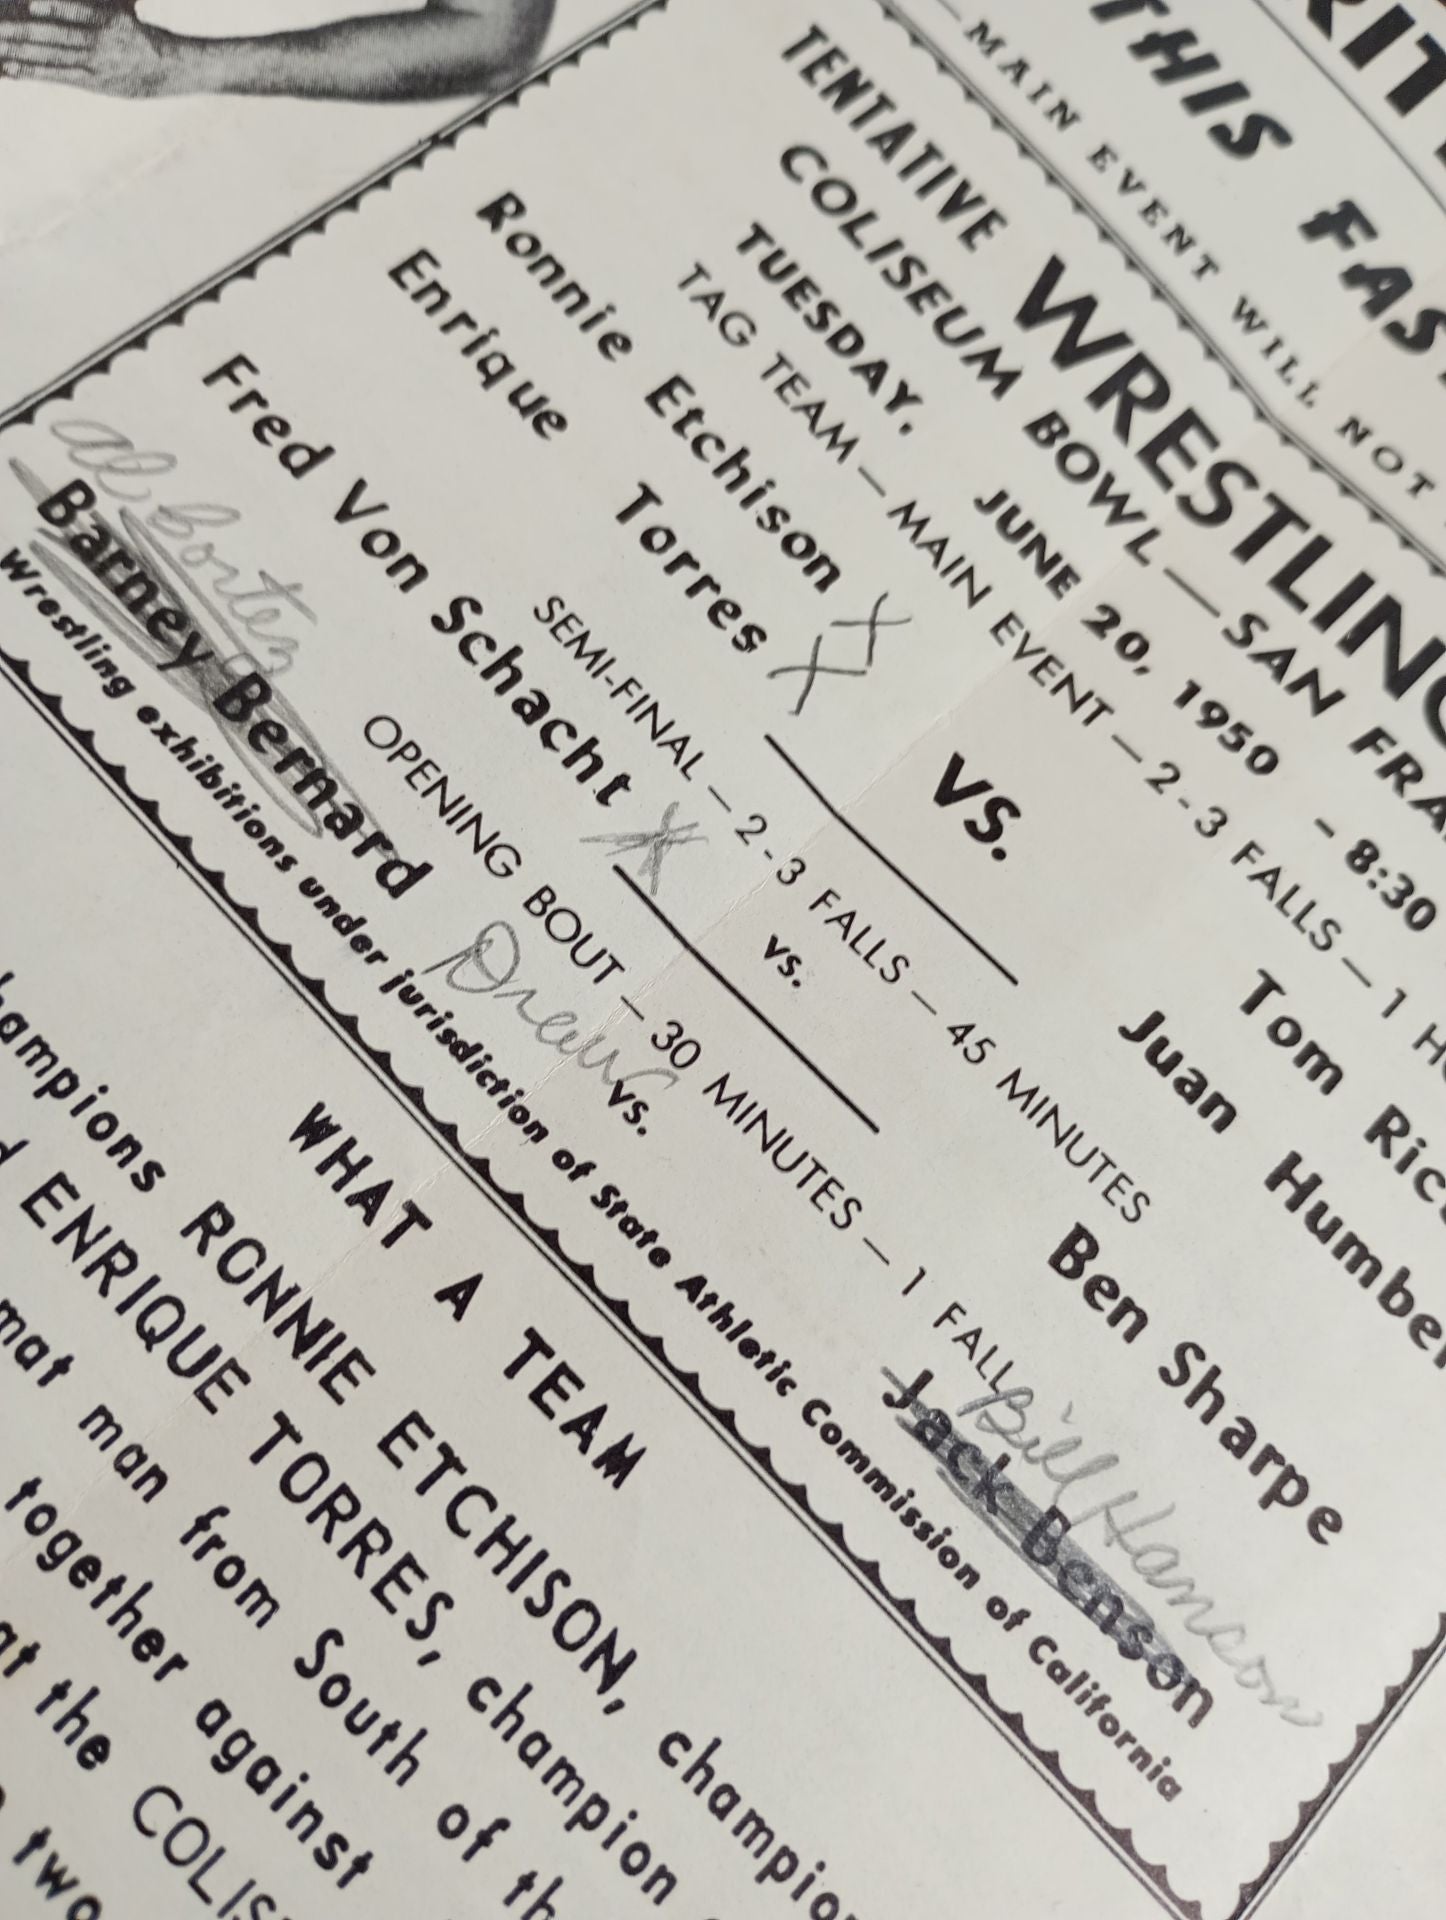 THIS FAS
MAIN EVENT WILL NOT
TENTATIVE WRESTLING
COLISEUM BOWL — SAN FRA
TUESDAY, JUNE 20, 1950 - 8:30
TAG TEAM — MAIN EVENT — 2-3 FALLS — 1 HO
Ronnie Etchison X VS. Tom Ric
Enrique Torres X Juan Humber
SEMI-FINAL — 2-3 FALLS — 45 MINUTES
Fred Von Schacht X vs. Ben Sharpe
OPENING BOUT — 30 MINUTES — 1 FALL
Al Bortez Draw Bill Hanson
Barney Bernard vs. Jack Benson
Wrestling exhibitions under jurisdiction of State Athletic Commission of California
WHAT A TEAM
hampions RONNIE ETCHISON, champio
d ENRIQUE TORRES, champion
mat man from South of th
together against
at the COLIS
two